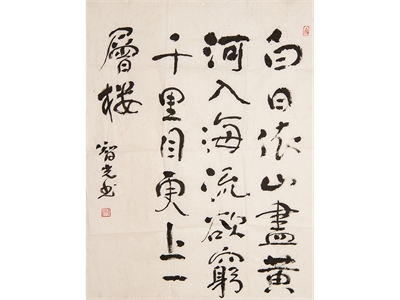 白日依山盡黄
河入海流欲窮
千里目更上一
層楼
智光书